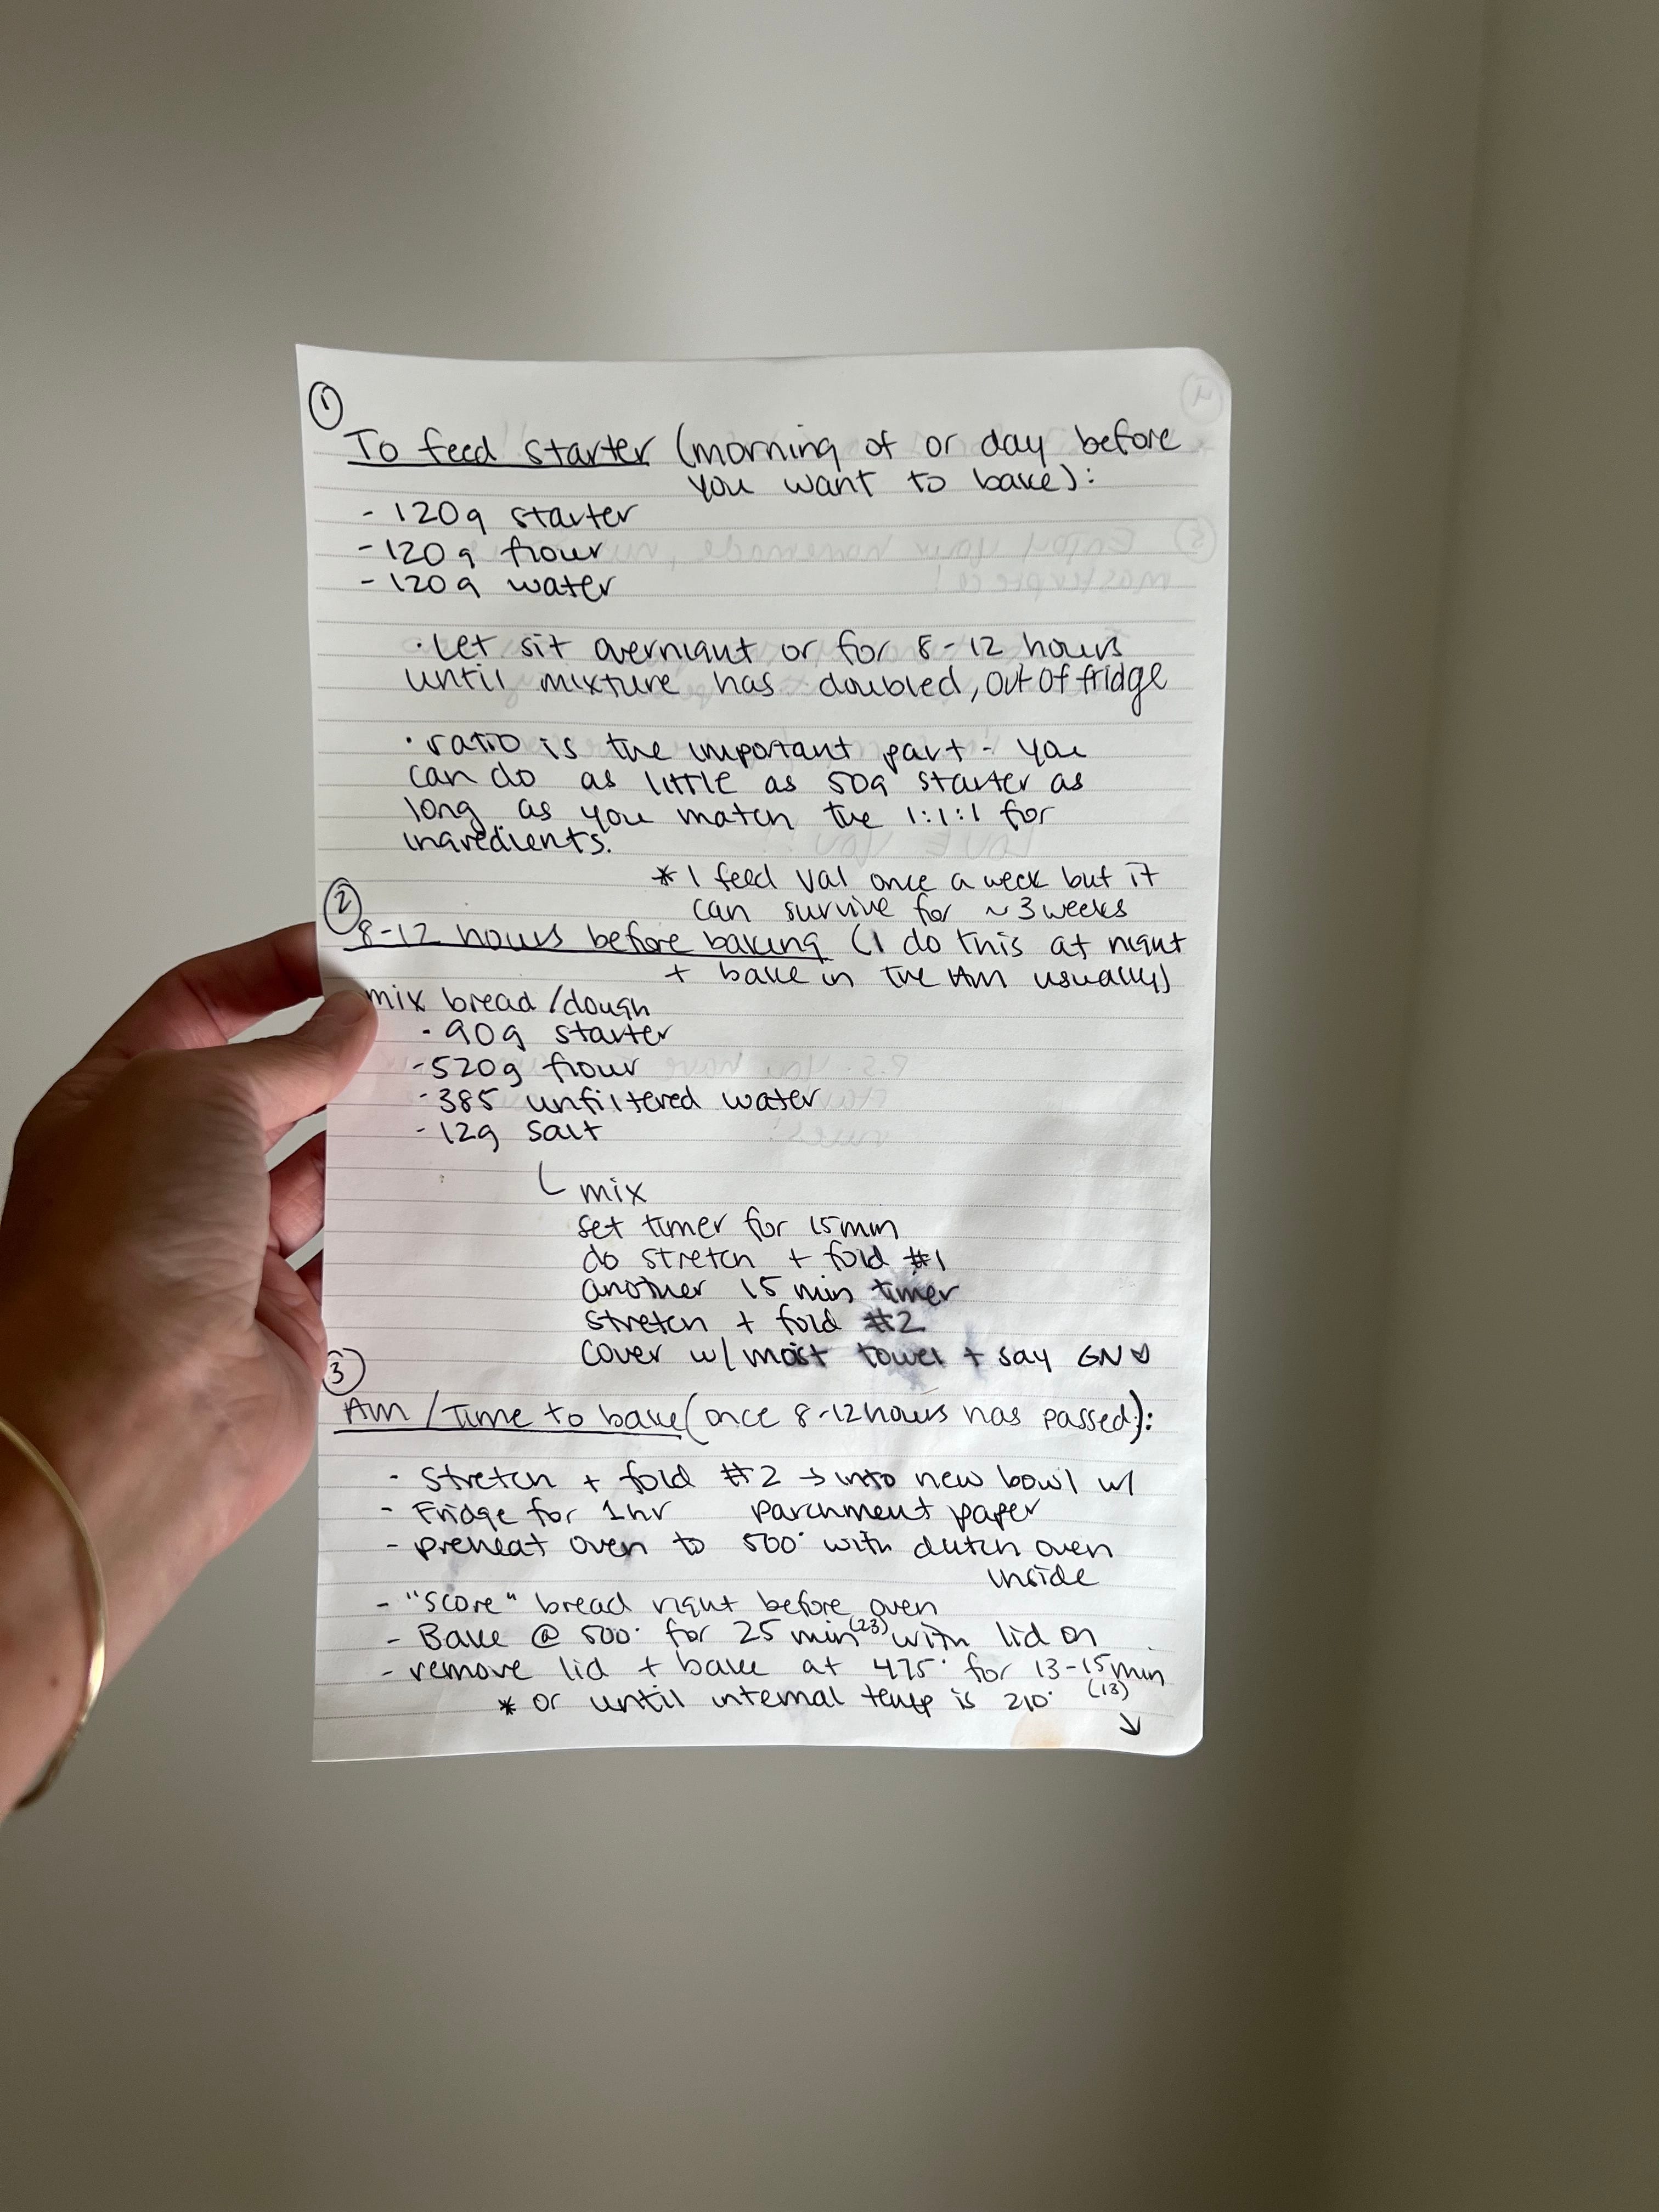 ①
To feed starter (morning of or day before
you want to bake):
- 120g starter
- 120g flour
- 120g water
· Let sit overnight or for 8-12 hours
until mixture has doubled, out of fridge
· ratio is the important part - you
can do as little as 50g starter as
long as you match the 1:1:1 for
ingredients.
* I feed Val once a week but it
can survive for ~3 weeks
②
8-12 hours before baking (I do this at night
+ bake in the AM usually)
mix bread/dough
- 90g starter
- 520g flour
- 385 unfiltered water
- 12g salt
mix
set timer for 15min
do stretch + fold #1
another 15 min timer
stretch + fold #2
cover w/ moist towel + say GN ♡
③
AM / Time to bake (once 8-12 hours has passed):
- Stretch + fold #2 → into new bowl w/
parchment paper
- Fridge for 1 hr
- preheat oven to 500° with dutch oven
inside
- "score" bread right before oven
- Bake @ 500° for 25 min (23) with lid on
- remove lid + bake at 475° for 13-15min
(13)
* or until internal temp is 210°
↘
④
⑤ Enjoy your homemade,
masterpiece!
LOVE YOU
P.S. You have